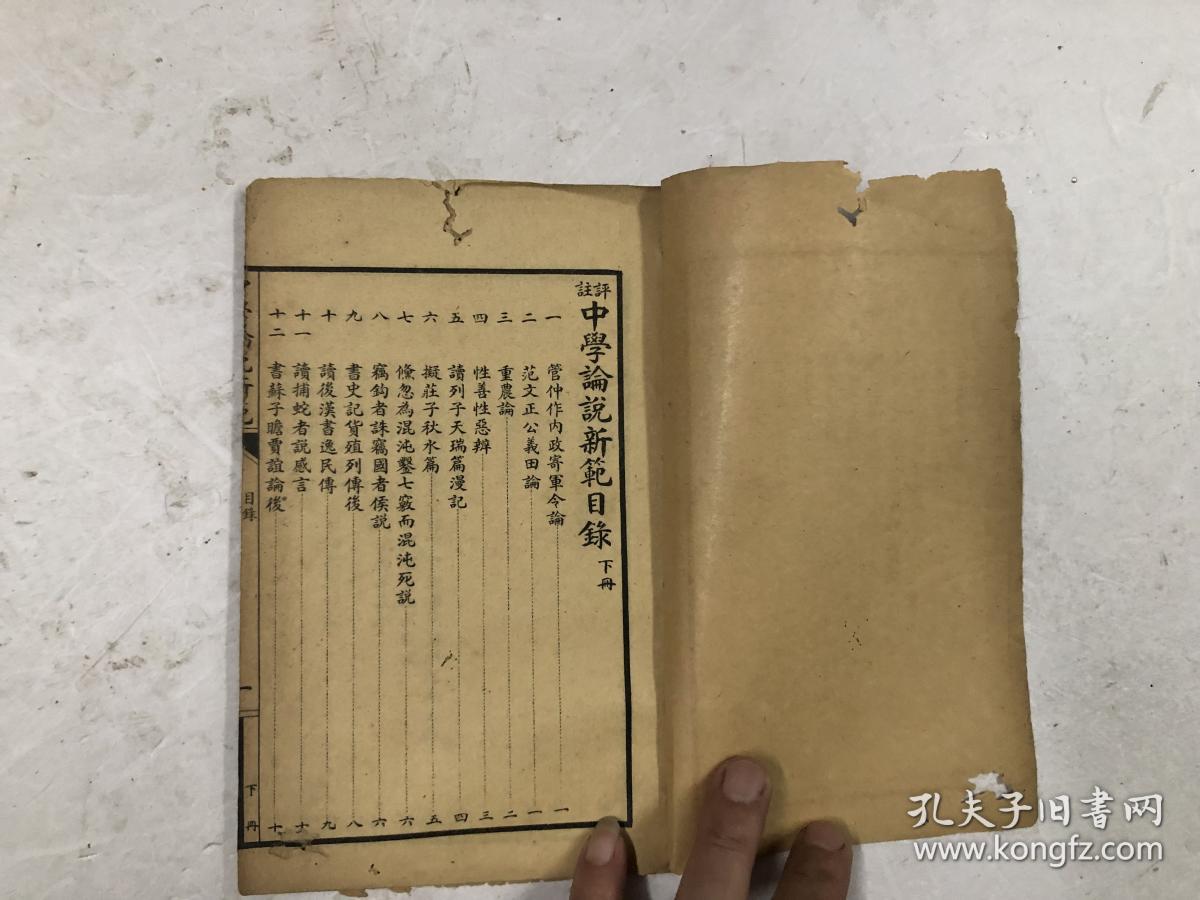 評註中學論說新範目錄 下冊
一 管仲作內政寄軍令論 一
二 范文正公義田論 一
三 重農論 二
四 性善性惡辨 三
五 讀列子天瑞篇漫記 四
六 擬莊子秋水篇 五
七 儵忽為混沌鑿七竅而混沌死說 六
八 竊鉤者誅竊國者侯說 六
九 書史記貨殖列傳後 八
十 讀後漢書逸民傳 九
十一 讀捕蛇者說感言 十
十二 書蘇子瞻賈誼論後 十
目錄
一
下冊
孔夫子旧书网
www.kongfz.com